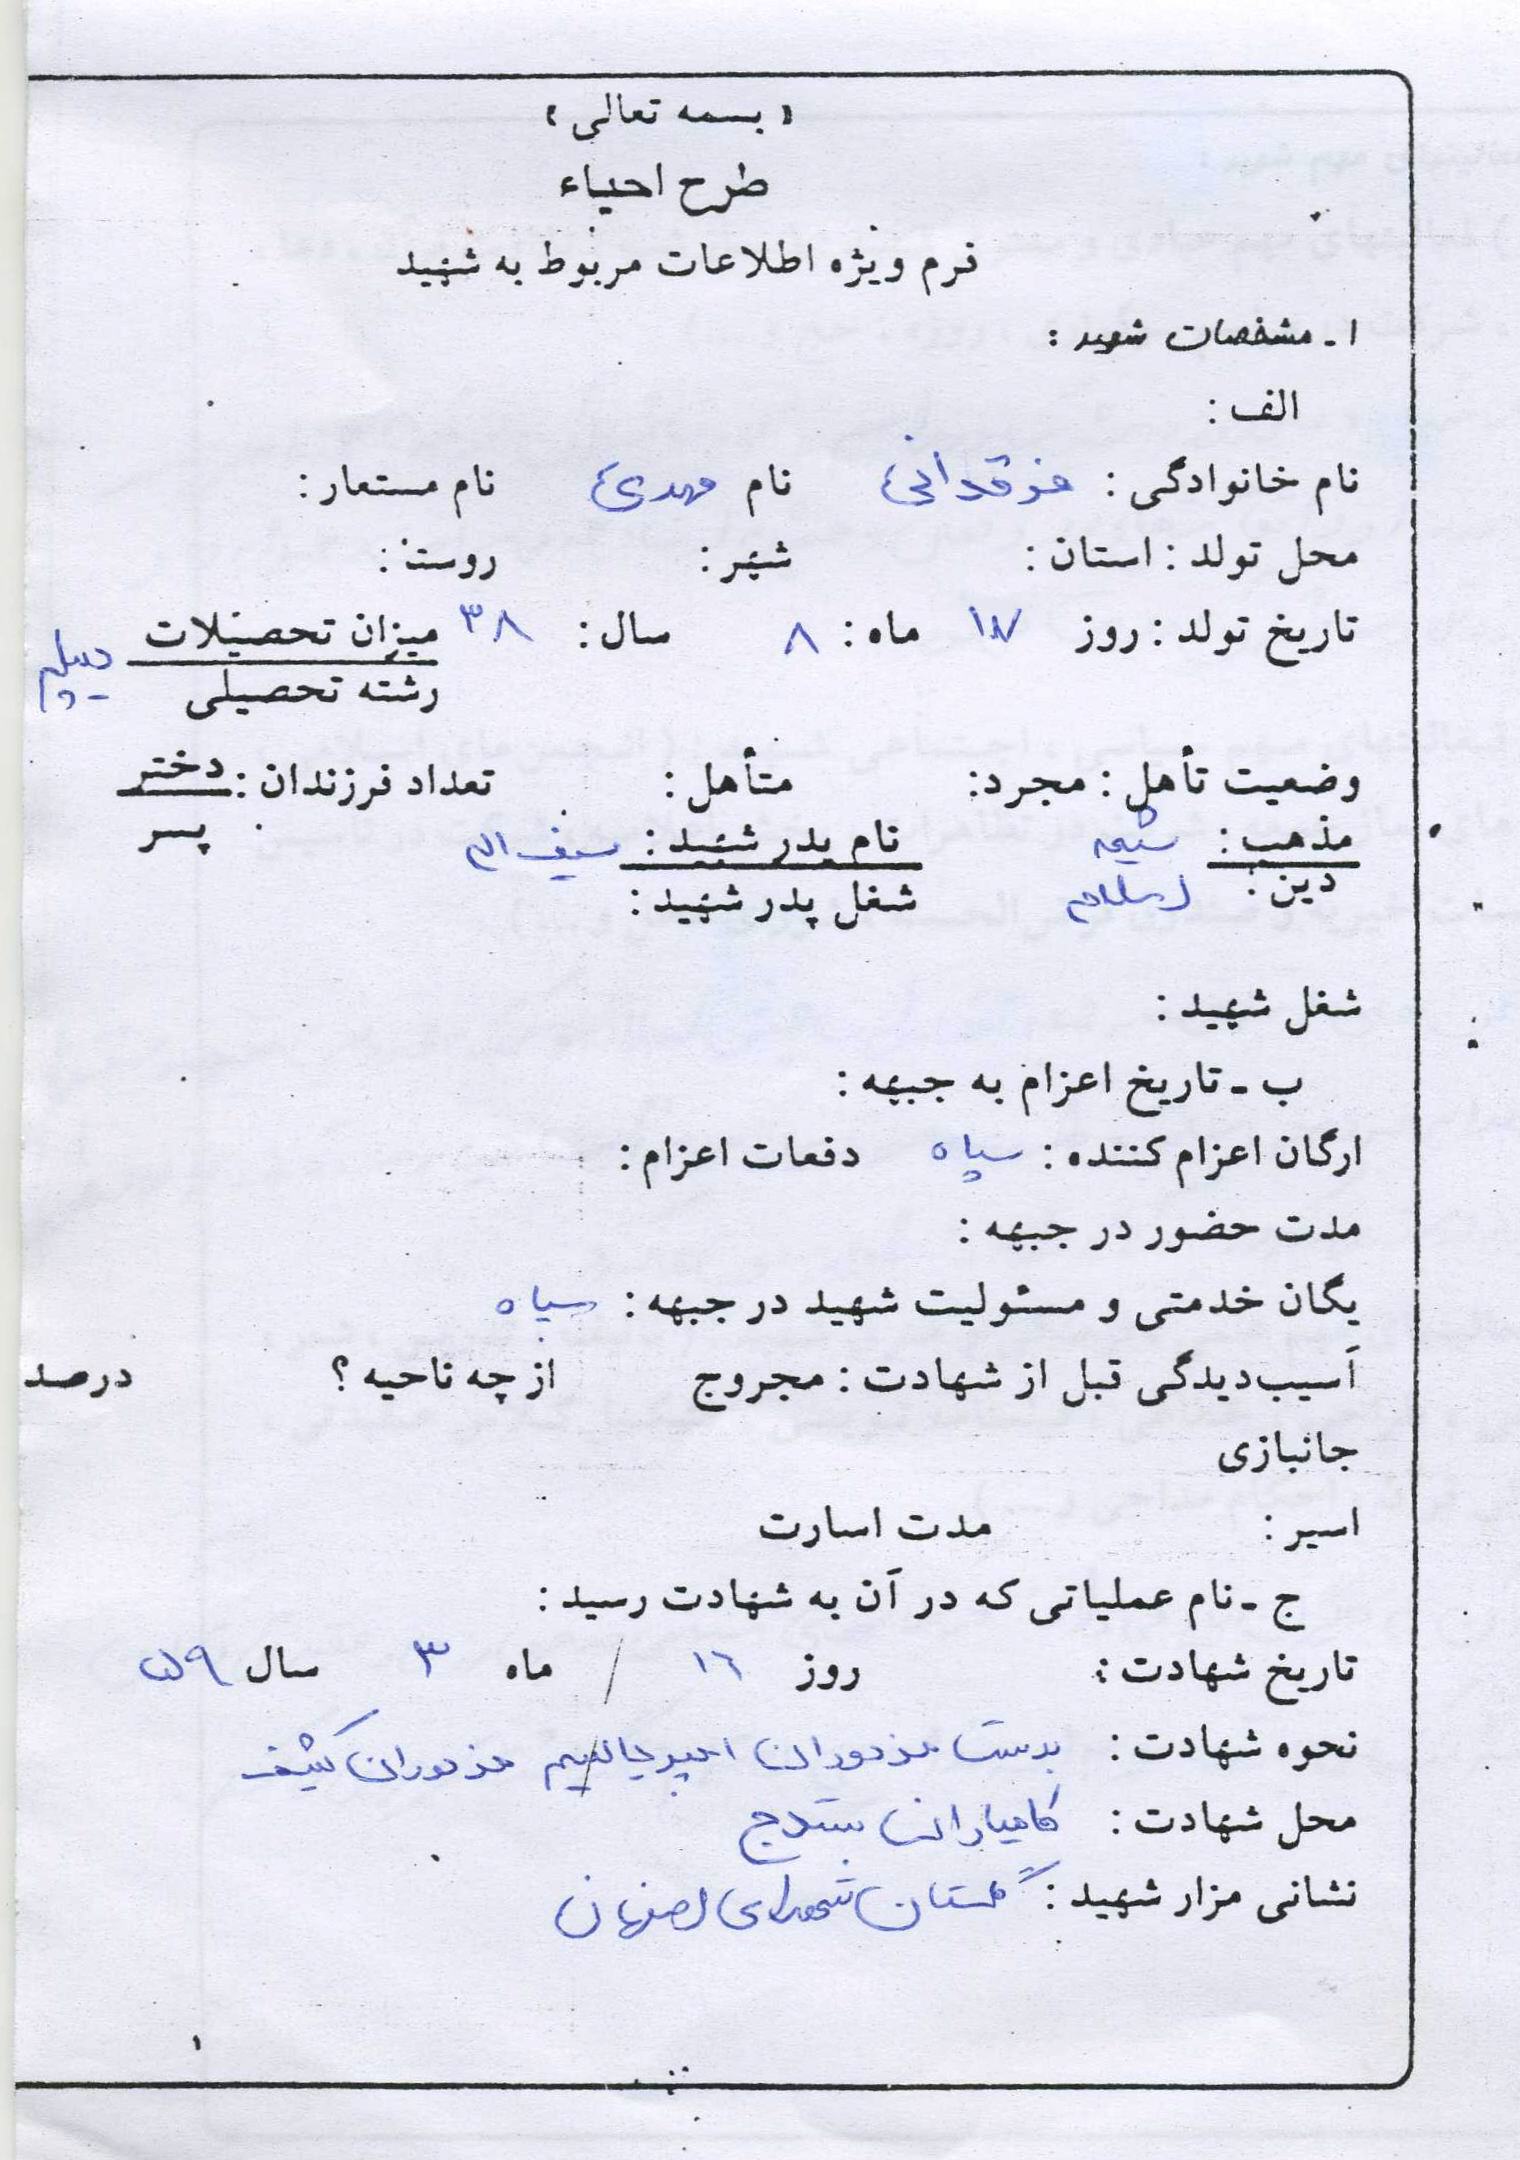 « بسمه تعالی »
طرح احیاء
فرم ویژه اطلاعات مربوط به شهید
۱ـ مشخصات شهید :
الف :
نام خانوادگی : فرقدانی نام مهدی نام مستعار :
محل تولد : استان : شهر : روستا :
تاریخ تولد : روز ماه : ۸ سال : ۳۸ میزان تحصیلات دیپلم
رشته تحصیلی
وضعیت تأهل : مجرد: متأهل : تعداد فرزندان : دختر
پسر
مذهب : شیعه نام پدر شهید : سیف اله
دین : اسلام شغل پدر شهید :
شغل شهید :
ب ـ تاریخ اعزام به جبهه :
ارگان اعزام کننده : سپاه دفعات اعزام :
مدت حضور در جبهه :
یگان خدمتی و مسئولیت شهید در جبهه : سپاه
آسیب‌دیدگی قبل از شهادت : مجروج از چه ناحیه ؟ درصد
جانبازی
اسیر : مدت اسارت
ج ـ نام عملیاتی که در آن به شهادت رسید :
تاریخ شهادت : روز ۱۶ / ماه ۳ سال ۵۹
نحوه شهادت : بدست مزدوران امپریالیسم مزدوران کثیف
محل شهادت : کامیاران سنندج
نشانی مزار شهید : گلستان شهدای اصفهان
۱